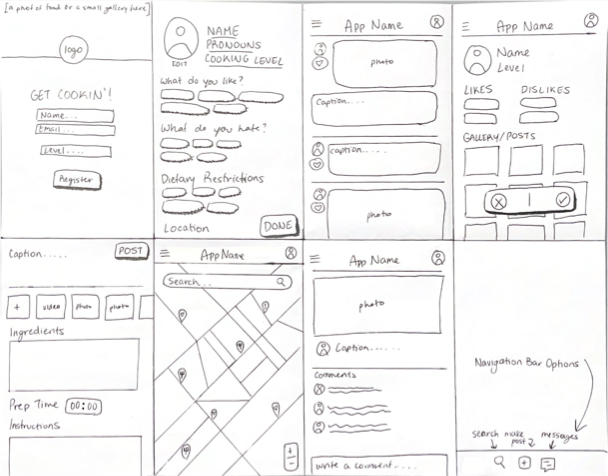 [a photo of food or a small gallery here]
logo
GET COOKIN'!
Name...
Email...
Level....
Register
EDIT
NAME
PRONOUNS
COOKING LEVEL
What do you like?
What do you hate?
Dietary Restrictions
Location
DONE
App Name
photo
Caption....
Caption.....
photo
App Name
Name
Level
LIKES
DISLIKES
GALLERY/POSTS
Caption.....
POST
+
video
photo
photo
Ingredients
Prep Time 00:00
Instructions
App Name
Search...
+
-
App Name
photo
Caption......
Comments
write a comment....
Navigation Bar Options
search
make post
messages